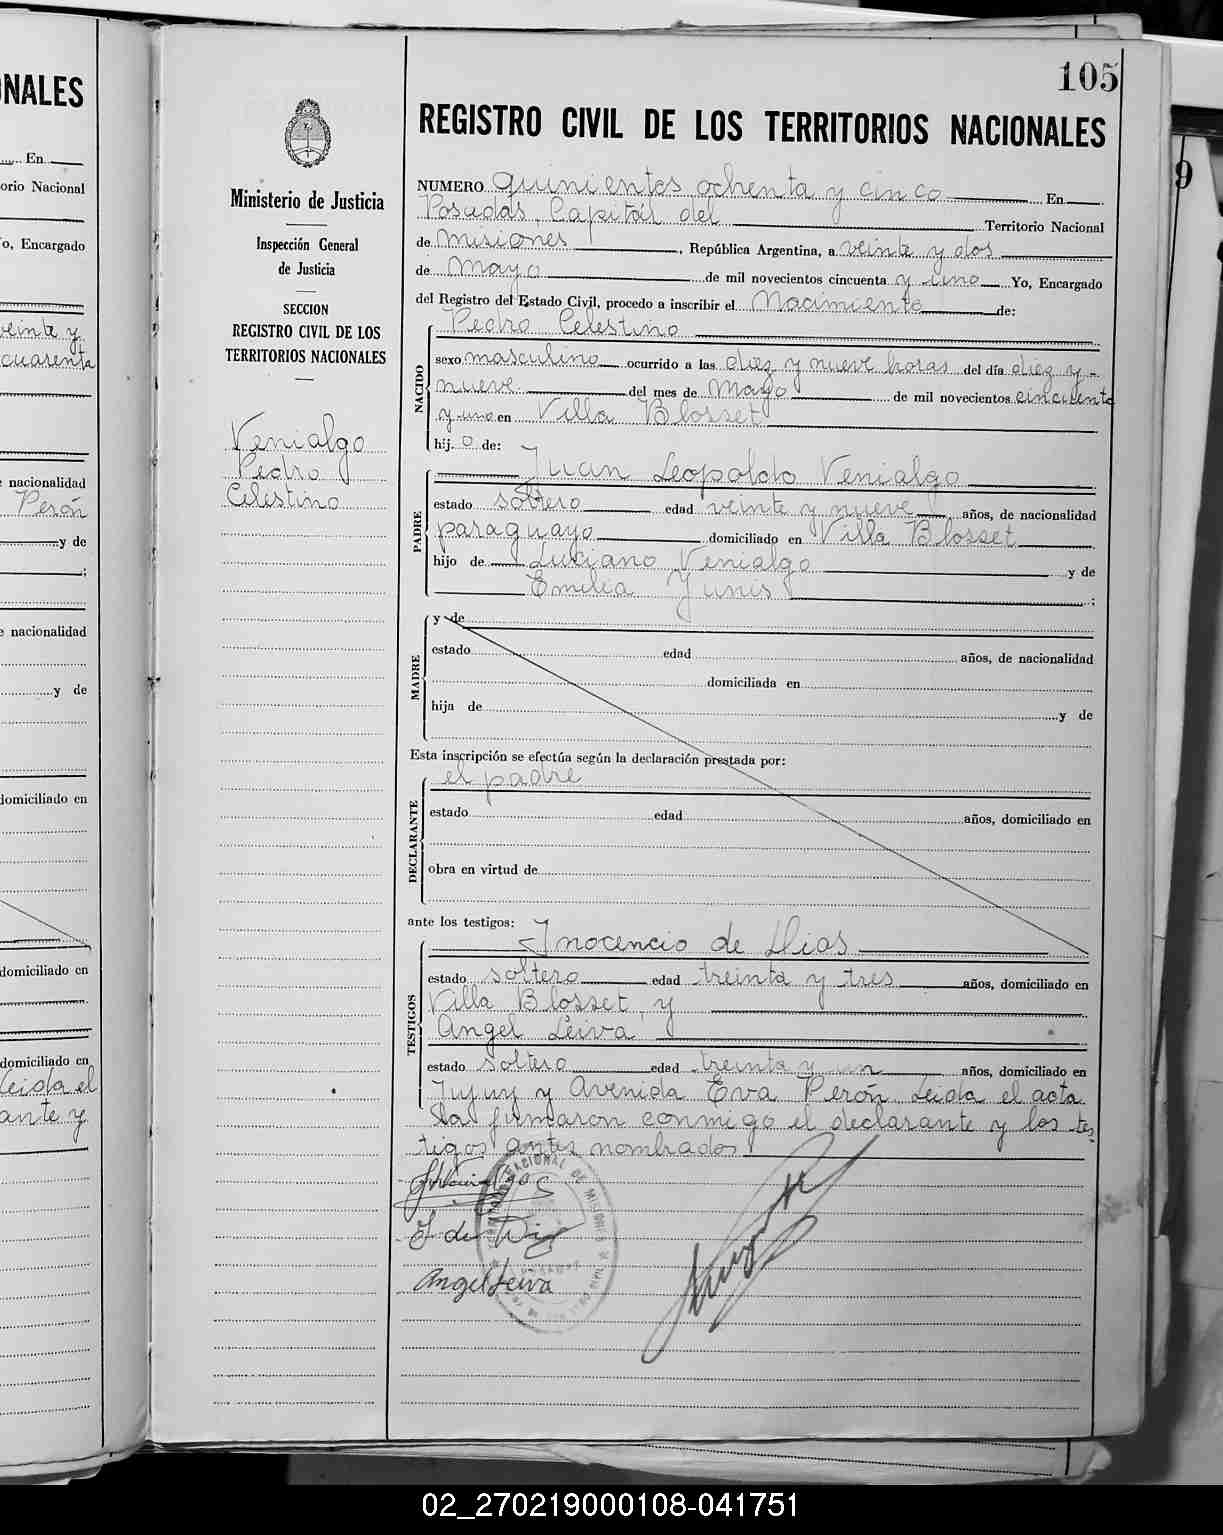 105
ONALES
En
orio Nacional
o, Encargado
veinte y
cuarenta
e nacionalidad
Perón
y de
;
e nacionalidad
y de
domiciliado en
domiciliado en
domiciliado en
Leida el
ante y
9
Ministerio de Justicia
Inspección General
de Justicia
SECCION
REGISTRO CIVIL DE LOS
TERRITORIOS NACIONALES
Venialgo
Pedro
Celestino
REGISTRO CIVIL DE LOS TERRITORIOS NACIONALES
NUMERO quinientos ochenta y cinco En
Posadas, Capital del Territorio Nacional
de Misiones, República Argentina, a veinte y dos
de Mayo de mil novecientos cincuenta y uno Yo, Encargado
del Registro del Estado Civil, procedo a inscribir el Nacimiento de:
NACIDO
Pedro Celestino
sexo masculino ocurrido a las diez y nueve horas del día diez y
nueve del mes de Mayo de mil novecientos cincuenta
y uno en Villa Blosset
hijo de:
PADRE
Juan Leopoldo Venialgo
estado soltero edad veinte y nueve años, de nacionalidad
paraguayo domiciliado en Villa Blosset
hijo de Luciano Venialgo y de
Emilia Yunis ;
MADRE
y de
estado edad años, de nacionalidad
domiciliada en
hija de y de
Esta inscripción se efectúa según la declaración prestada por:
DECLARANTE
el padre
estado edad años, domiciliado en
obra en virtud de
ante los testigos:
TESTIGOS
Inocencio de Dios
estado soltero edad treinta y tres años, domiciliado en
Villa Blosset, y
Angel Leiva
estado soltero edad treinta y un años, domiciliado en
Jujuy y Avenida Eva Perón. Leida el acta
la firmaron conmigo el declarante y los tes
tigos antes nombrados
Angel Leiva
02_270219000108-041751